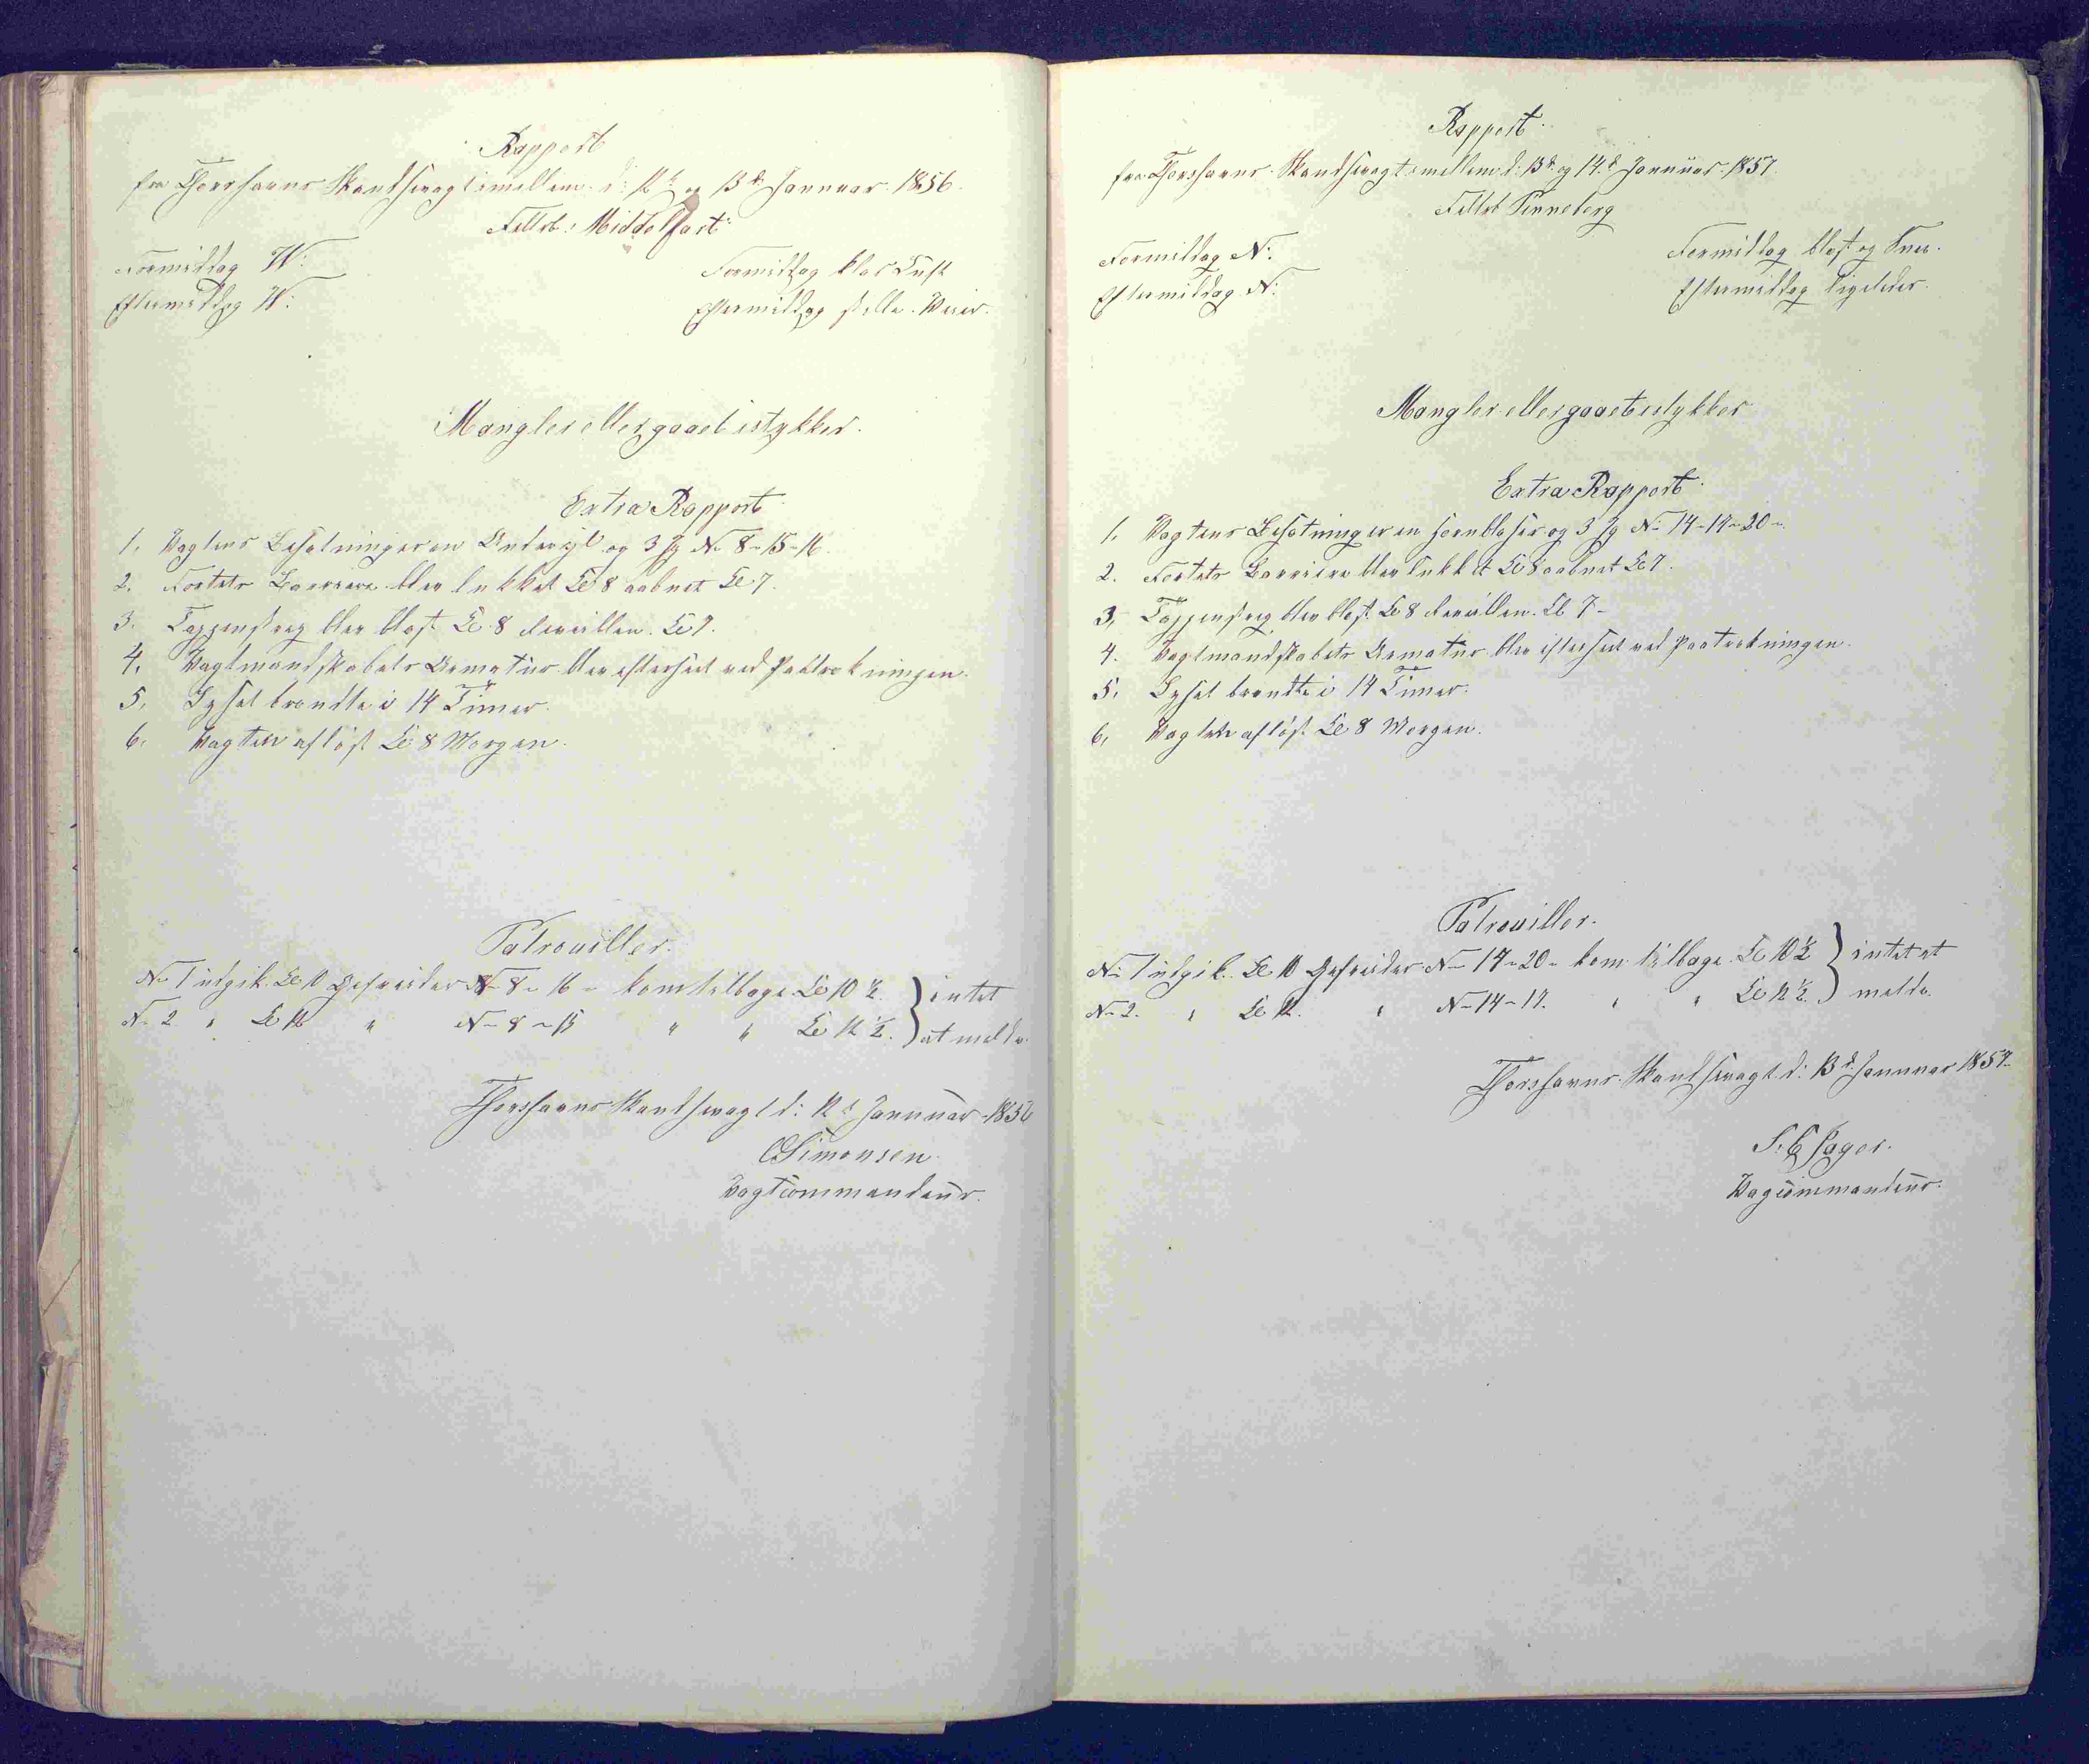 Rapport
fra Thorshavns Skandsevagt imellem d: 12te og 13de Januar 1856.
Feltrb: Middelfart
Formiddag W: Formiddag klar Luft
Eftermiddag W: Eftermiddag stille Veier.
Mangler eller gaaet istykker.
Extra Rapport
1. Vagtens Besætning er en Underojb og 3 Jg No 8-15-16.
2. Fortets Barriere blev lukket Kl 8 aabnet Kl 7.
3. Tappenstreg blev blæst Kl 8 Reveillen Kl 7.
4. Vagtmandskabets Armatur blev efterseet ved Paatrækningen.
5. Lyset brændte i 14 Timer.
6. Vagten afløst Kl 8 Morgen.
Patrouiller.
No 1 udgik Kl 10 Gefreider No 8-16 - kom tilbage Kl 10 ½ } intet
No 2 " Kl 12 " No 8-15 " " Kl 12 ½. } at melde.
Thorshavns Skandsevagt d: 12te Januar 1856
CSimonsen
Vagtcommandeur.
Rapport
fra Thorshavns Skandsevagt imellem d: 13de og 14de Januar 1857.
Feltrb Pinneberg
Formiddag N: Formiddag blæst og Snee.
Eftermiddag N: Eftermiddag ligeledes.
Mangler eller gaaet istykker
Extra Rapport
1. Vagtens Besætning er en Hornblæser og 3 Jg No 14-17-20-.
2. Fortets Barriere blev lukket Kl 8 aabnet Kl 7.
3. Tappenstreg blev blæst Kl 8 Reveillen Kl 7-
4. Vagtmandskabets Armatur blev efterseet ved Paatrækningen.
5. Lyset brændte i 14 Timer.
6. Vagten afløst Kl 8 Morgen.
Patrouiller.
No 1 udgik Kl 10 Gefreider No 17-20- kom tilbage Kl 10 ½ } intet at
No 2. " Kl 12. " No 14-17. " " Kl 12 ½. } melde.
Thorshavns Skandsevagt d: 13de Januar 1857.
Vagcommandeur.